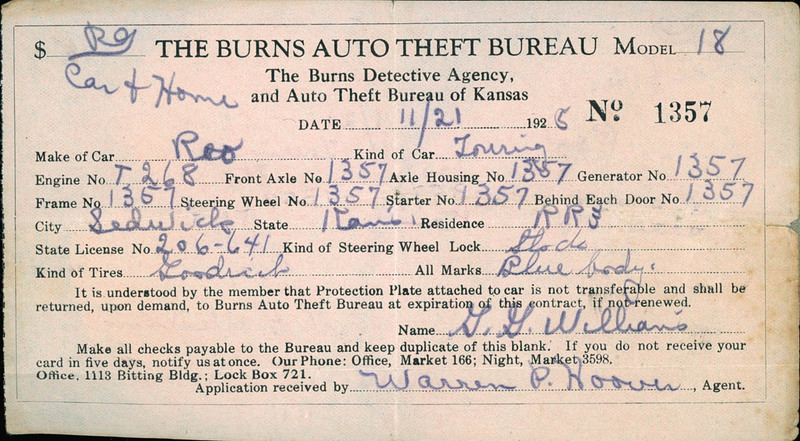 $ THE BURNS AUTO THEFT BUREAU MODEL 18
Car & Home
The Burns Detective Agency,
and Auto Theft Bureau of Kansas
DATE 11/21 1928 No 1357
Make of Car Reo Kind of Car Touring
Engine No T 268 Front Axle No 1357 Axle Housing No 1357 Generator No 1357
Frame No 1357 Steering Wheel No 1357 Starter No 1357 Behind Each Door No 1357
City Sedwick State Kans. Residence RR3
State License No 206-641 Kind of Steering Wheel Lock
Kind of Tires All Marks Blue body.
It is understood by the member that Protection Plate attached to car is not transferable and shall be
returned, upon demand, to Burns Auto Theft Bureau at expiration of this contract, if not renewed.
Name G. G. Williams
Make all checks payable to the Bureau and keep duplicate of this blank. If you do not receive your
card in five days, notify us at once. Our Phone: Office, Market 166; Night, Market 3598.
Office, 1113 Bitting Bldg.; Lock Box 721.
Application received by Warren P. Hoover, Agent.